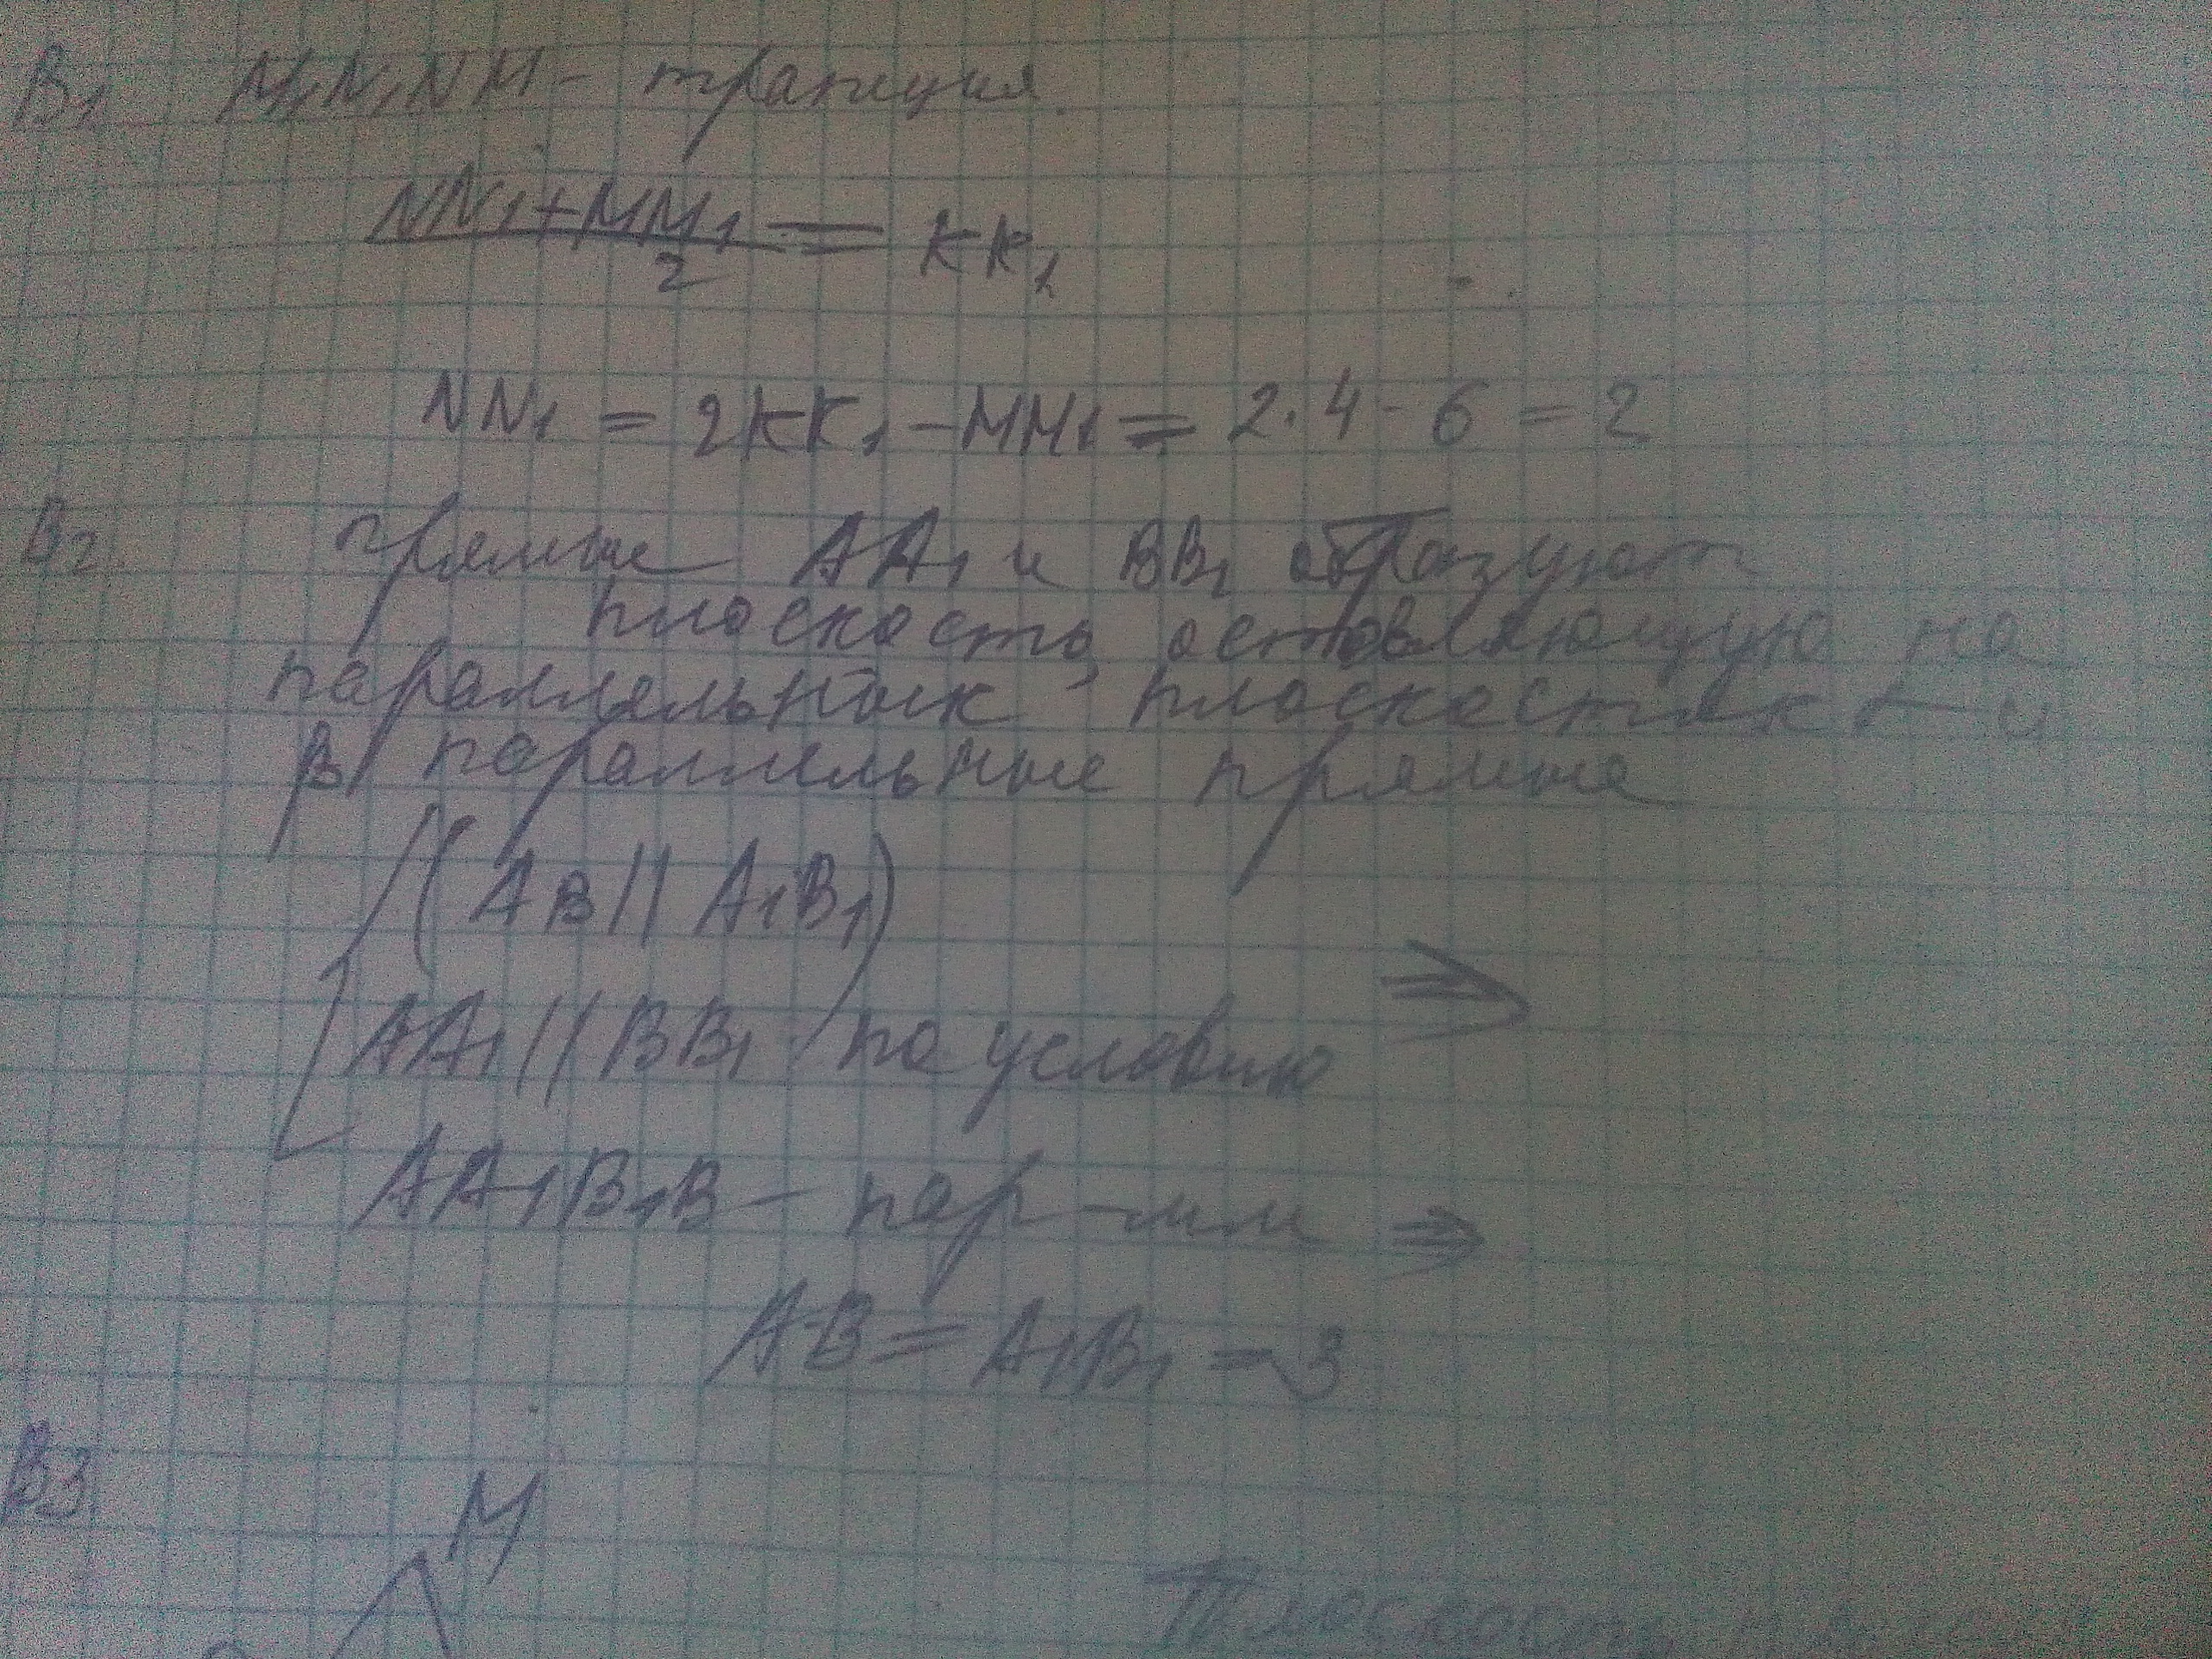 B1 M1N1NM - трапеция.
NN1+MM1
2
= KK1
NN1 = 2KK1 - MM1 = 2·4 - 6 = 2
B2. прямые AA1 и BB1 образуют
плоскость, оставляющую на
параллельных плоскостях α и
β параллельные прямые
(AB || A1B1)
AA1 || BB1 по условию ⇒
AA1B1B - пар-мм ⇒
AB = A1B1 = 3
B3
M
Плоскость